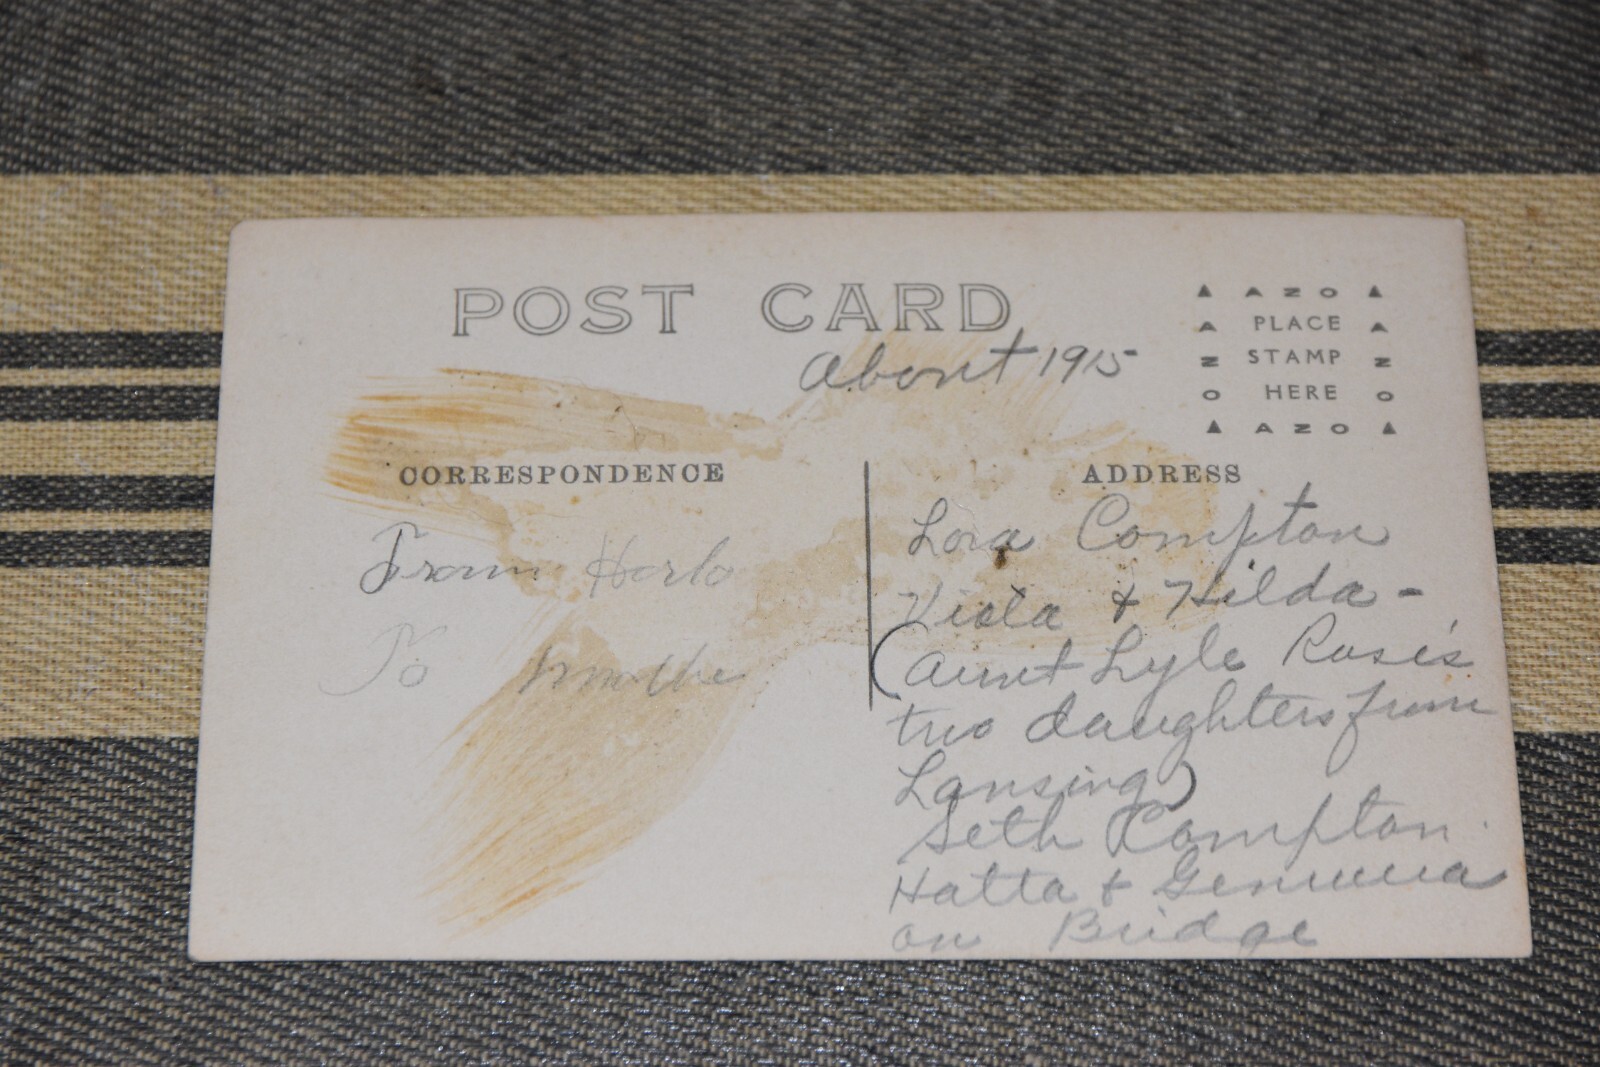 POST CARD
▲ AZO ▲
PLACE
STAMP
HERE
▲ AZO ▲
AZO
AZO
About 1915
CORRESPONDENCE
From
To
ADDRESS
Lora Compton
Viola & Hilda -
(Aunt Lyle Rose's
two daughters from
Lansing)
Seth Compton.
Hatta &
on Bridge